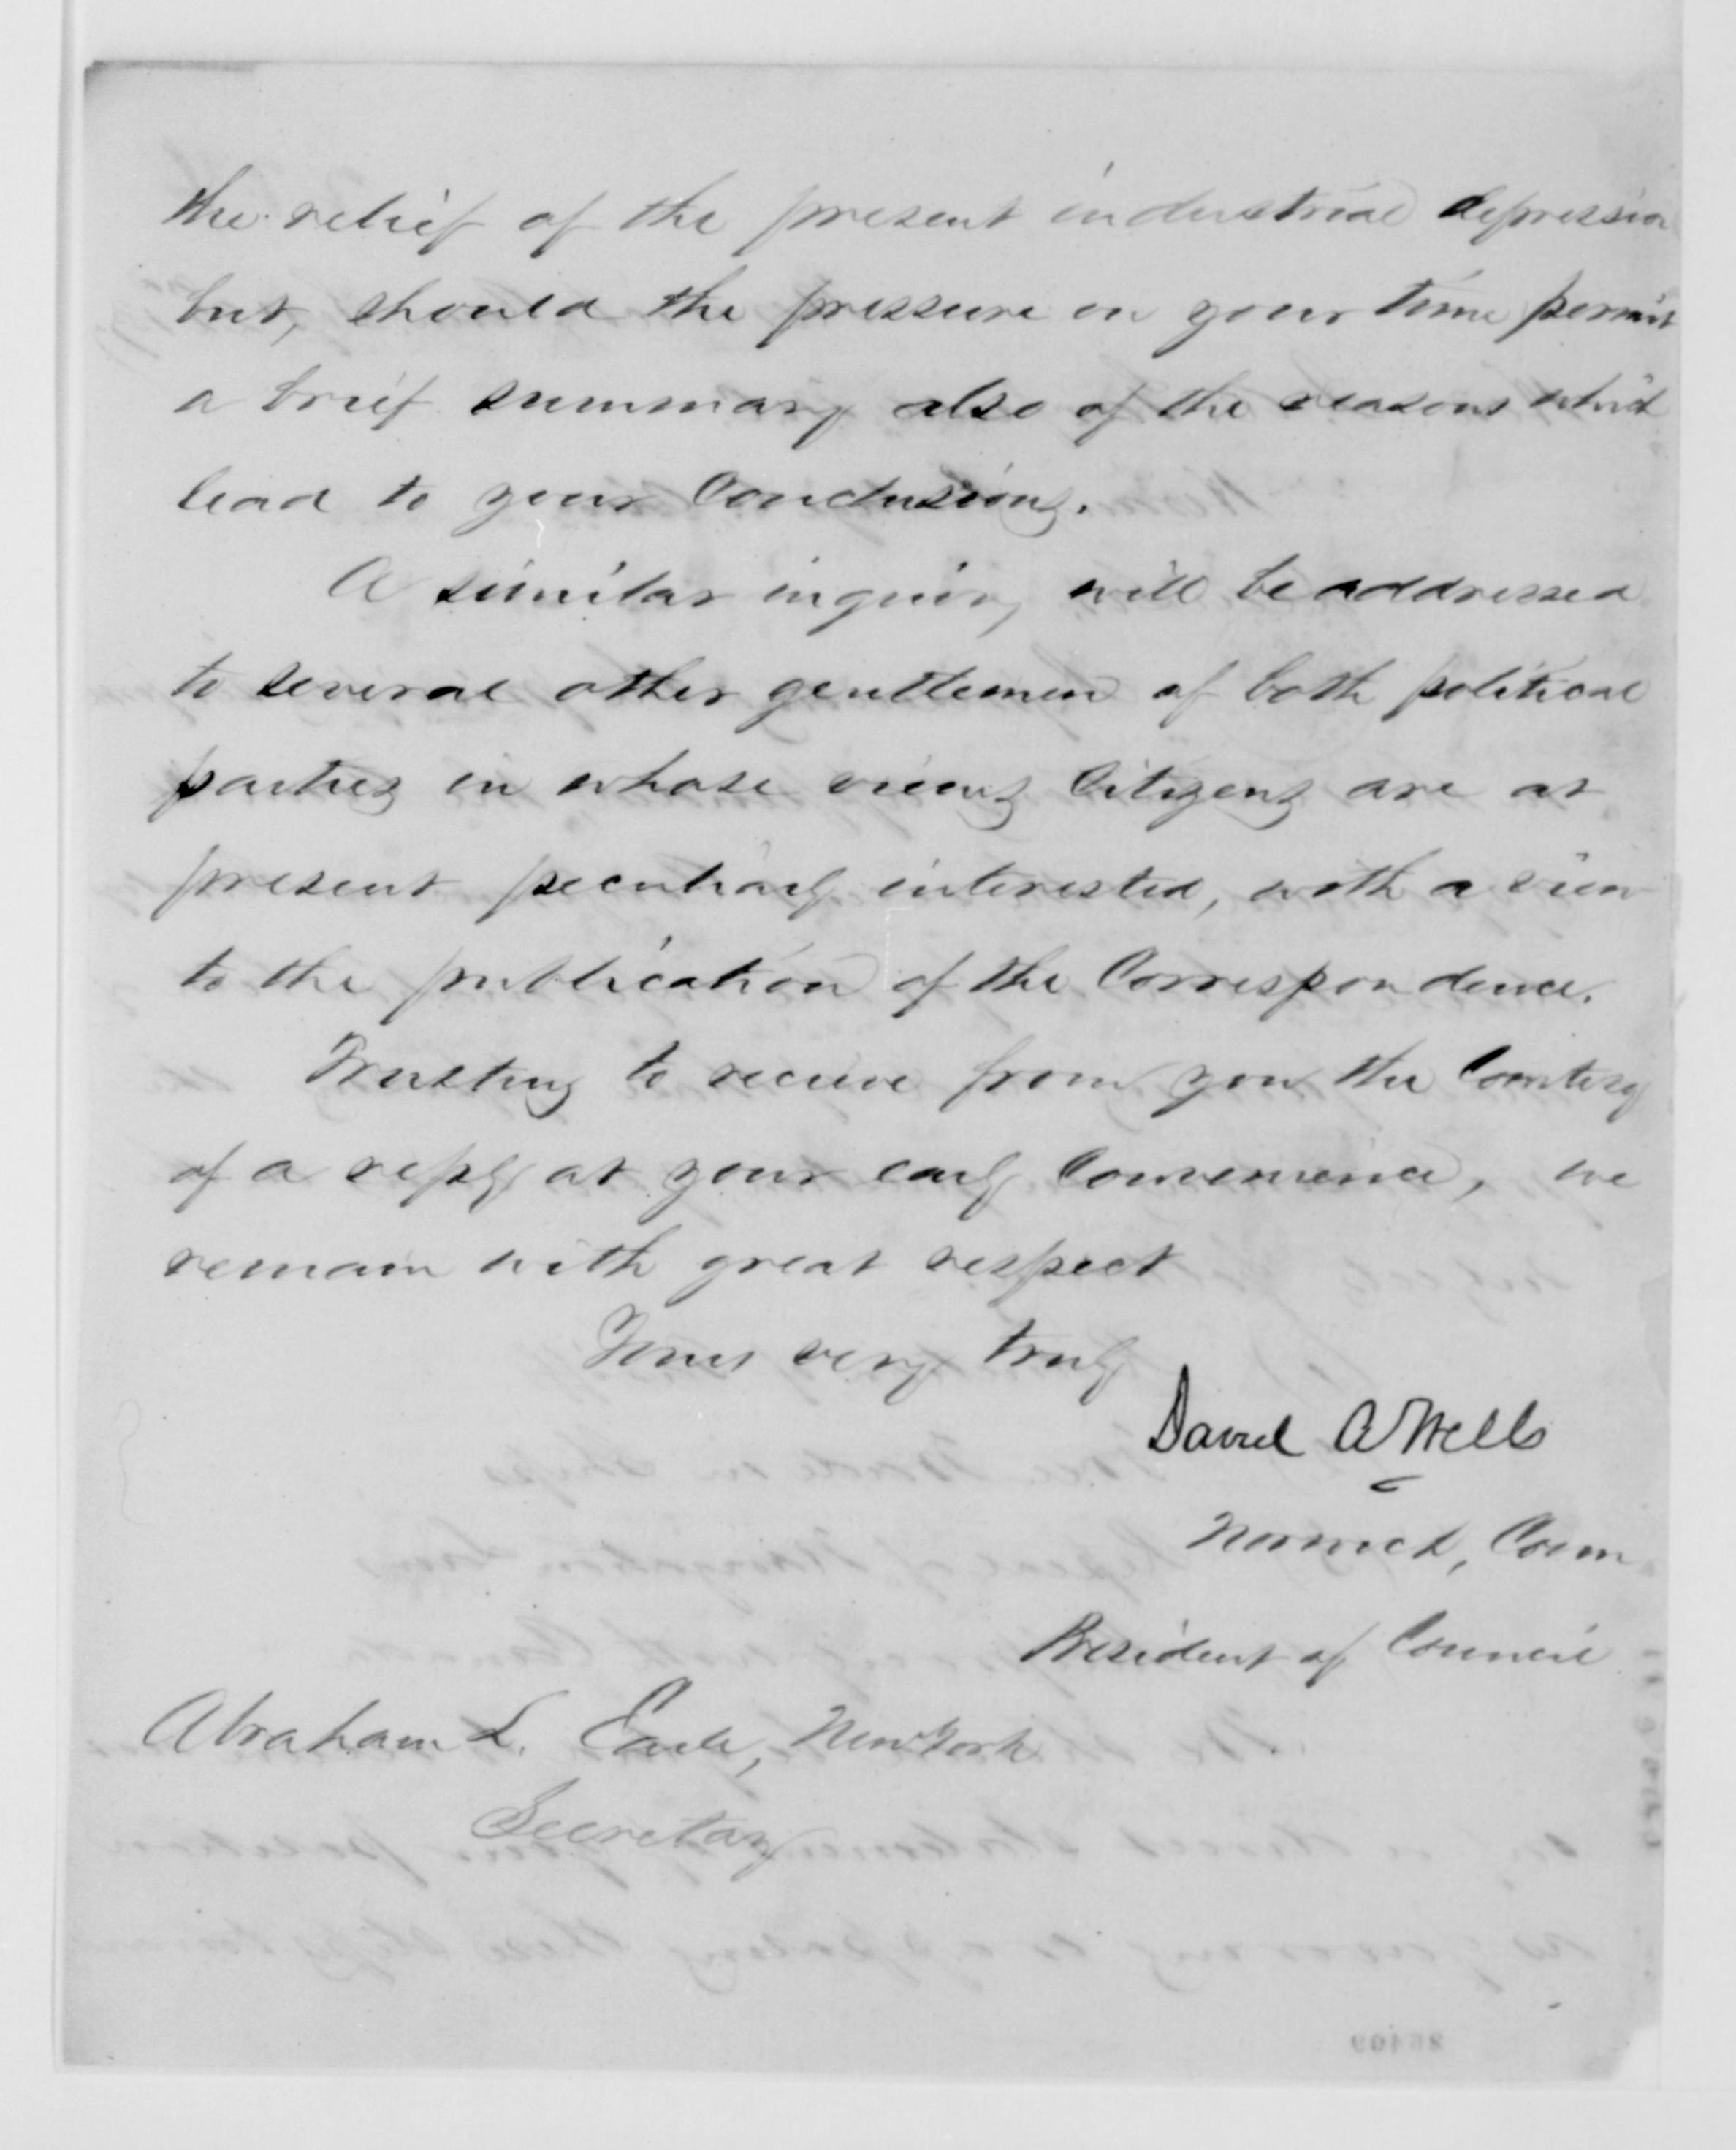 the relief of the present industrial depression
but, should the pressure on your time permit
a brief summary also of the reasons which
lead to your Conclusions.
A similar inquiry will be addressed
to several other gentlemen of both political
parties in whose views Citizens are at
present peculiarly interested, with a view
to the publication of the Correspondence.
Trusting to receive from you the Courtesy
of a reply at your early Convenience, we
remain with great respect
Yours very truly
David A Wells
Norwich, Conn
President of Council
Abraham L. Earle, New York
Secretary